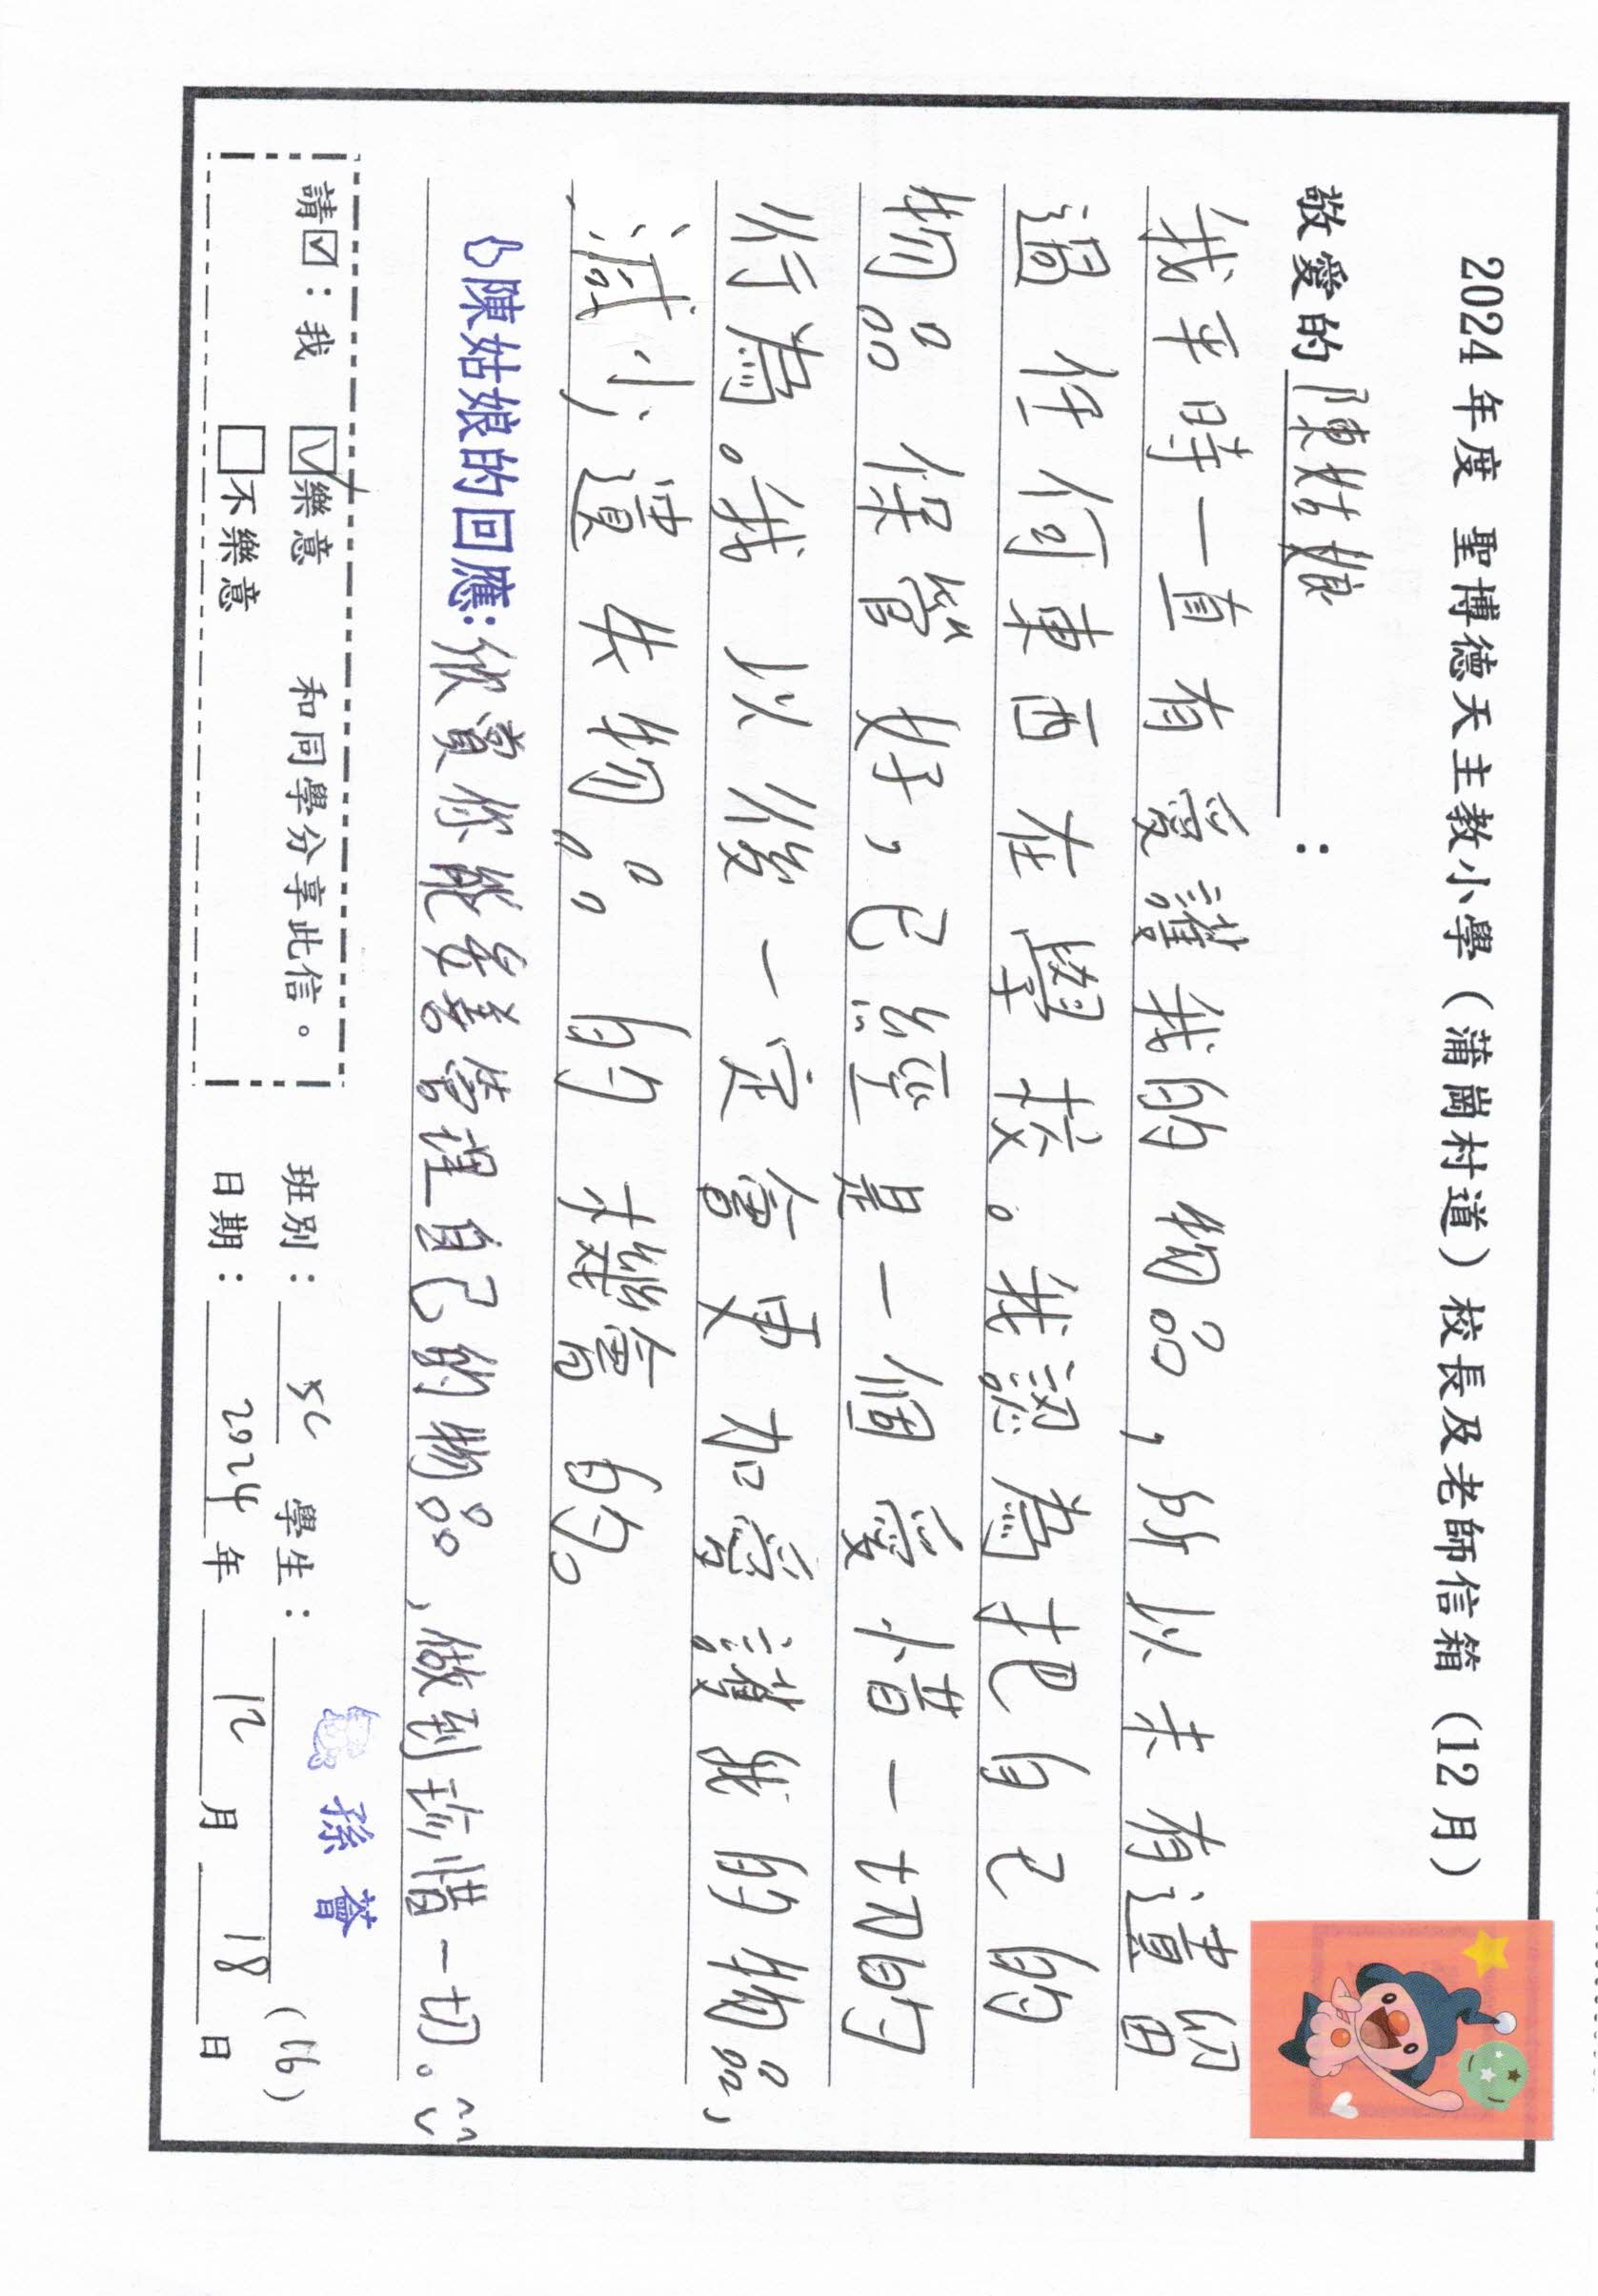 2024 年度 聖博德天主教小學（蒲崗村道）校長及老師信箱（12 月）
敬愛的陳姑娘：
我平時一直有愛護我的物品，所以未有遺留
過任何東西在學校。我認為把自己的
物品保管好，已經是一個愛惜一切的
行為。我以後一定會更加愛護我的物品，
減少遺失物品的機會的。
陳姑娘的回應：欣賞你能妥善管理自己的物品，做到珍惜一切。
請☑：我 ☑樂意 和同學分享此信。
□不樂意
班別：5C 學生：孫薈 (16)
日期：2024 年 12 月 18 日